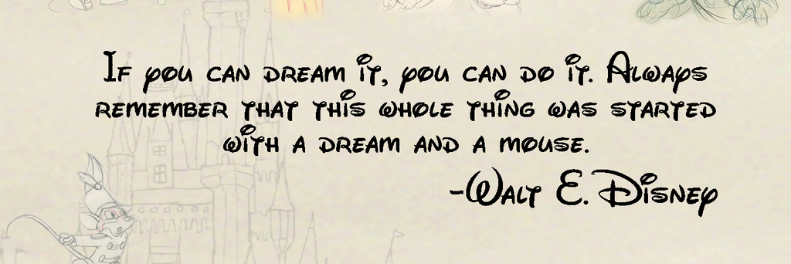 If you can dream it, you can do it. Always
remember that this whole thing was started
with a dream and a mouse.
-Walt E. Disney